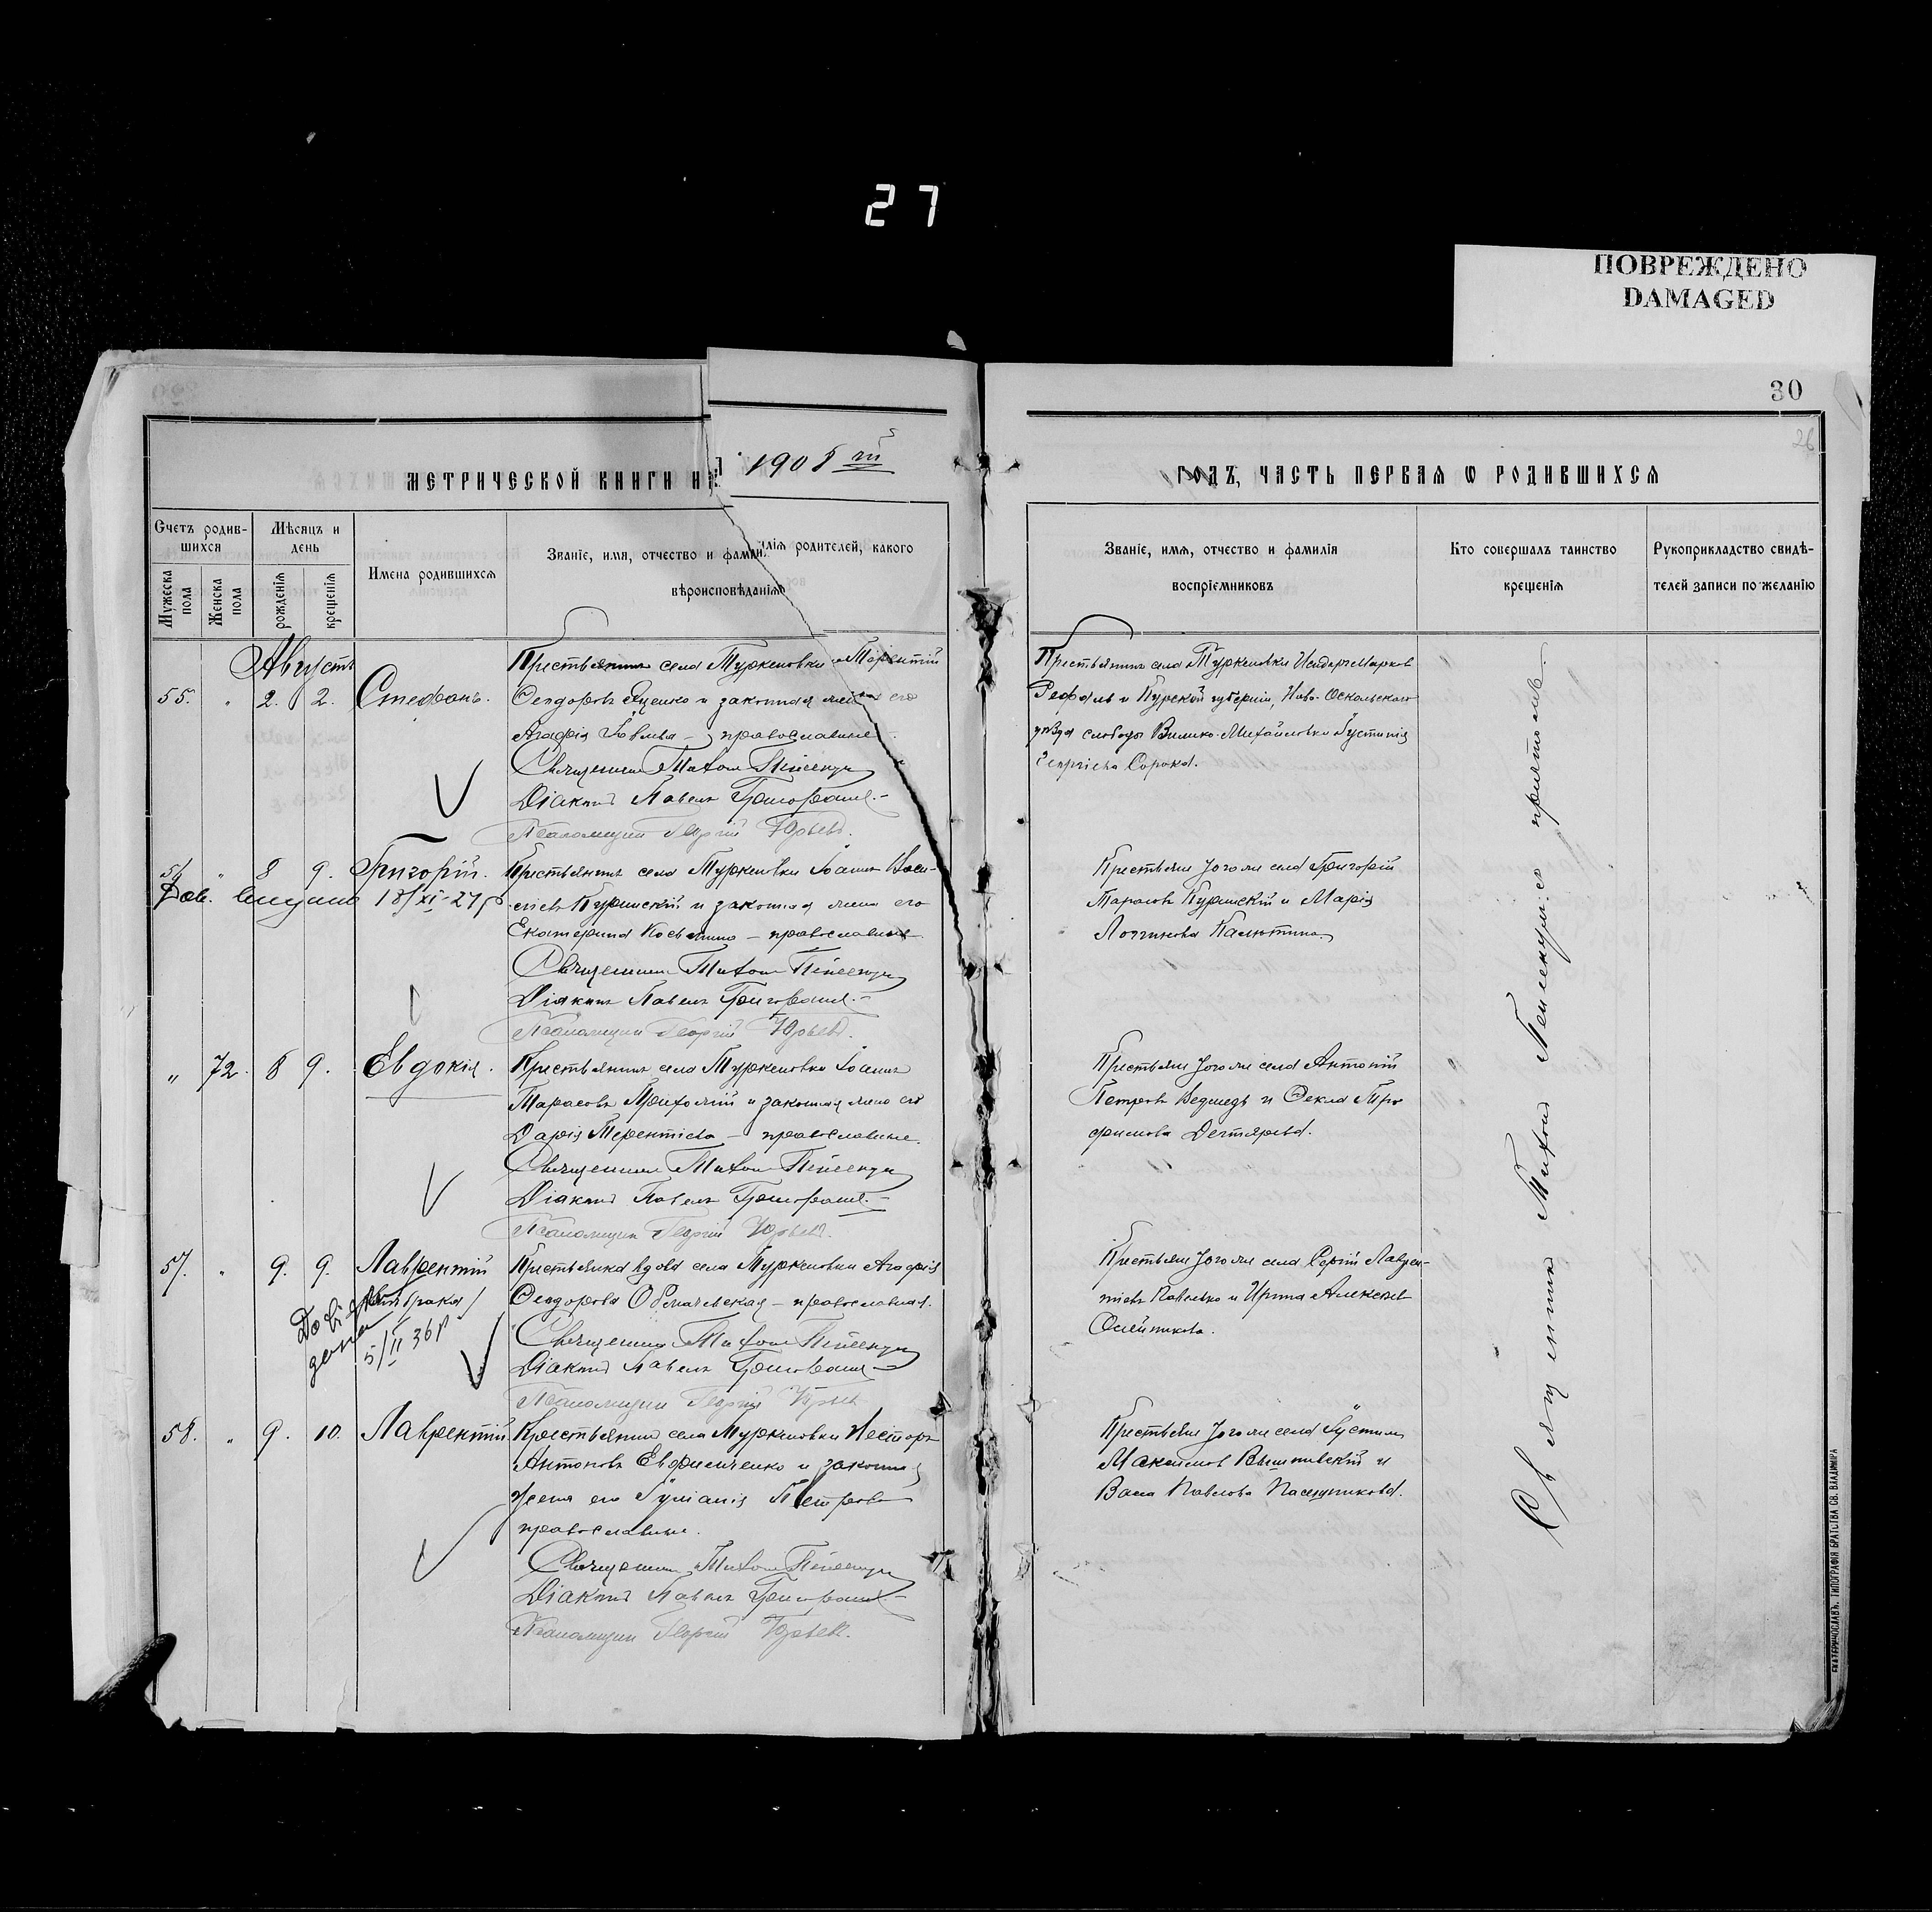 27
ПОВРЕЖДЕНО
DAMAGED
30
26
МЕТРИЧЕСКОЙ КНИГИ НА 1908 й
ГОДЪ, ЧАСТЬ ПЕРВАЯ Ѡ РОДИВШИХСЯ
Счетъ родив-
шихся
Мужеска пола
Женска пола
Мѣсяцъ и
день
рожденія
крещенія
Имена родившихся
Званіе, имя, отчество и фамилія родителей, какого
вѣроисповѣданія
Званіе, имя, отчество и фамилія
воспріємниковъ
Кто совершалъ таинство
крещенія
Рукоприкладство свидѣ-
телей записи по желанію
Августъ
55. " 2. 2. Стефанъ.
Крестьянинъ села Туркеновки Терентій
Ѳеодоровъ Яценко и законная жена его
Агафія - православные.
Священникъ Тихонъ
Діаконъ Павелъ
Псаломщикъ Георгій Юрьевъ.
Крестьянинъ села Туркеновки Исидоръ Марковъ
и Курской губерніи, Ново-Оскольскаго
уѣзда слободы Велико-Михайловки Іустинія
Сорока.
56 " 8 9. Григорій.
18/XI-27р.
Крестьянинъ села Туркеновки Іоаннъ Васи-
ліевъ Куринскій и законная жена его
Екатерина Косьмина - православные
Священникъ Тихонъ
Діаконъ Павелъ
Псаломщикъ Георгій Юрьевъ.
Крестьяне того же села Григорій
Тарасовъ Куринскій и Марія
Логгинова Калютина.
" 72. 8 9. Евдокія.
Крестьянинъ села Туркеновки Іоаннъ
Тарасовъ и законная жена его
Дарія Терентіева - православные.
Священникъ Тихонъ
Діаконъ Павелъ
Псаломщикъ Георгій Юрьевъ.
Крестьяне того же села Антоній
Петровъ Ведмедь и Ѳекла Тро
фимова Дегтярева.
57. " 9. 9. Лаврентій
5/II 36р
Крестьянка вдова села Туркеновки Агафія
Ѳеодорова - православная.
Священникъ Тихонъ
Діаконъ Павелъ
Псаломщикъ Георгій Юрьевъ
Крестьяне того же села Сергій Лаврен-
тіевъ Павленко и Ирина Алексѣева
Олейникова.
58. " 9. 10. Лаврентій.
Крестьянинъ села Туркеновки Несторъ
Антоновъ Евфименко и законная
жена его Іуліанія Петрова
православные.
Священникъ Тихонъ
Діаконъ Павелъ
Псаломщикъ Георгій Юрьевъ.
Крестьяне того же села Іустинъ
Максимовъ и
Павлова Пасещникова.
Священникъ Тихонъ
ЕКАТЕРИНОСЛАВЪ. ТИПОГРАФІЯ БРАТСТВА СВ. ВЛАДИМІРА